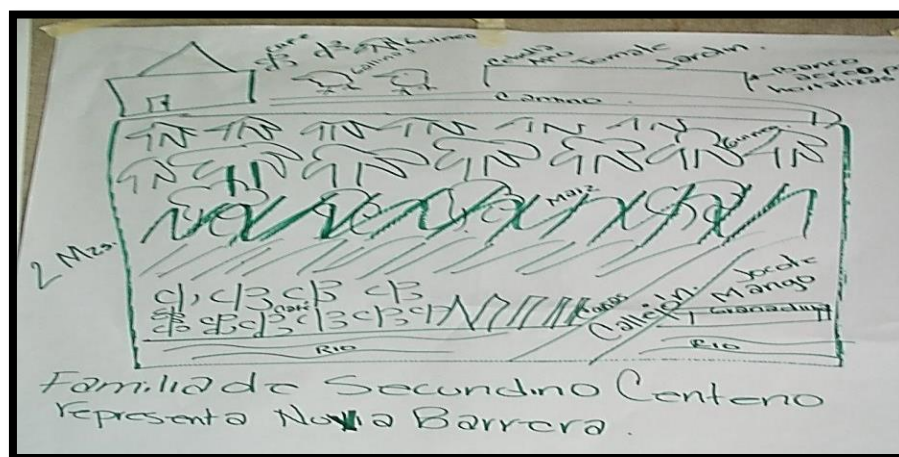 cafe
Guineo
Gallinas
Cebolla
Apio
Tomate
Jardin.
Banco
aereo p
hortalizas
Camino
Guineo
Maiz
2 Mzs.
Café
Cañas
Callejon.
Jocote
Mango
Granadilla
RIO
RIO
Familia de Secundino Centeno
representa Novia Barrera.